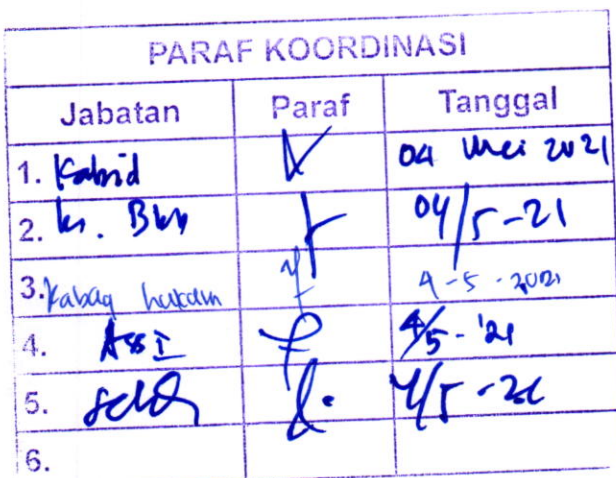 PARAF KOORDINASI
Jabatan Paraf Tanggal
1. Kabid 04 Mei 2021
2. 04/5-21
3. Kabag hukum 4-5-2021
4. Ass I 4/5-'21
5. Sekda 4/5-21
6.